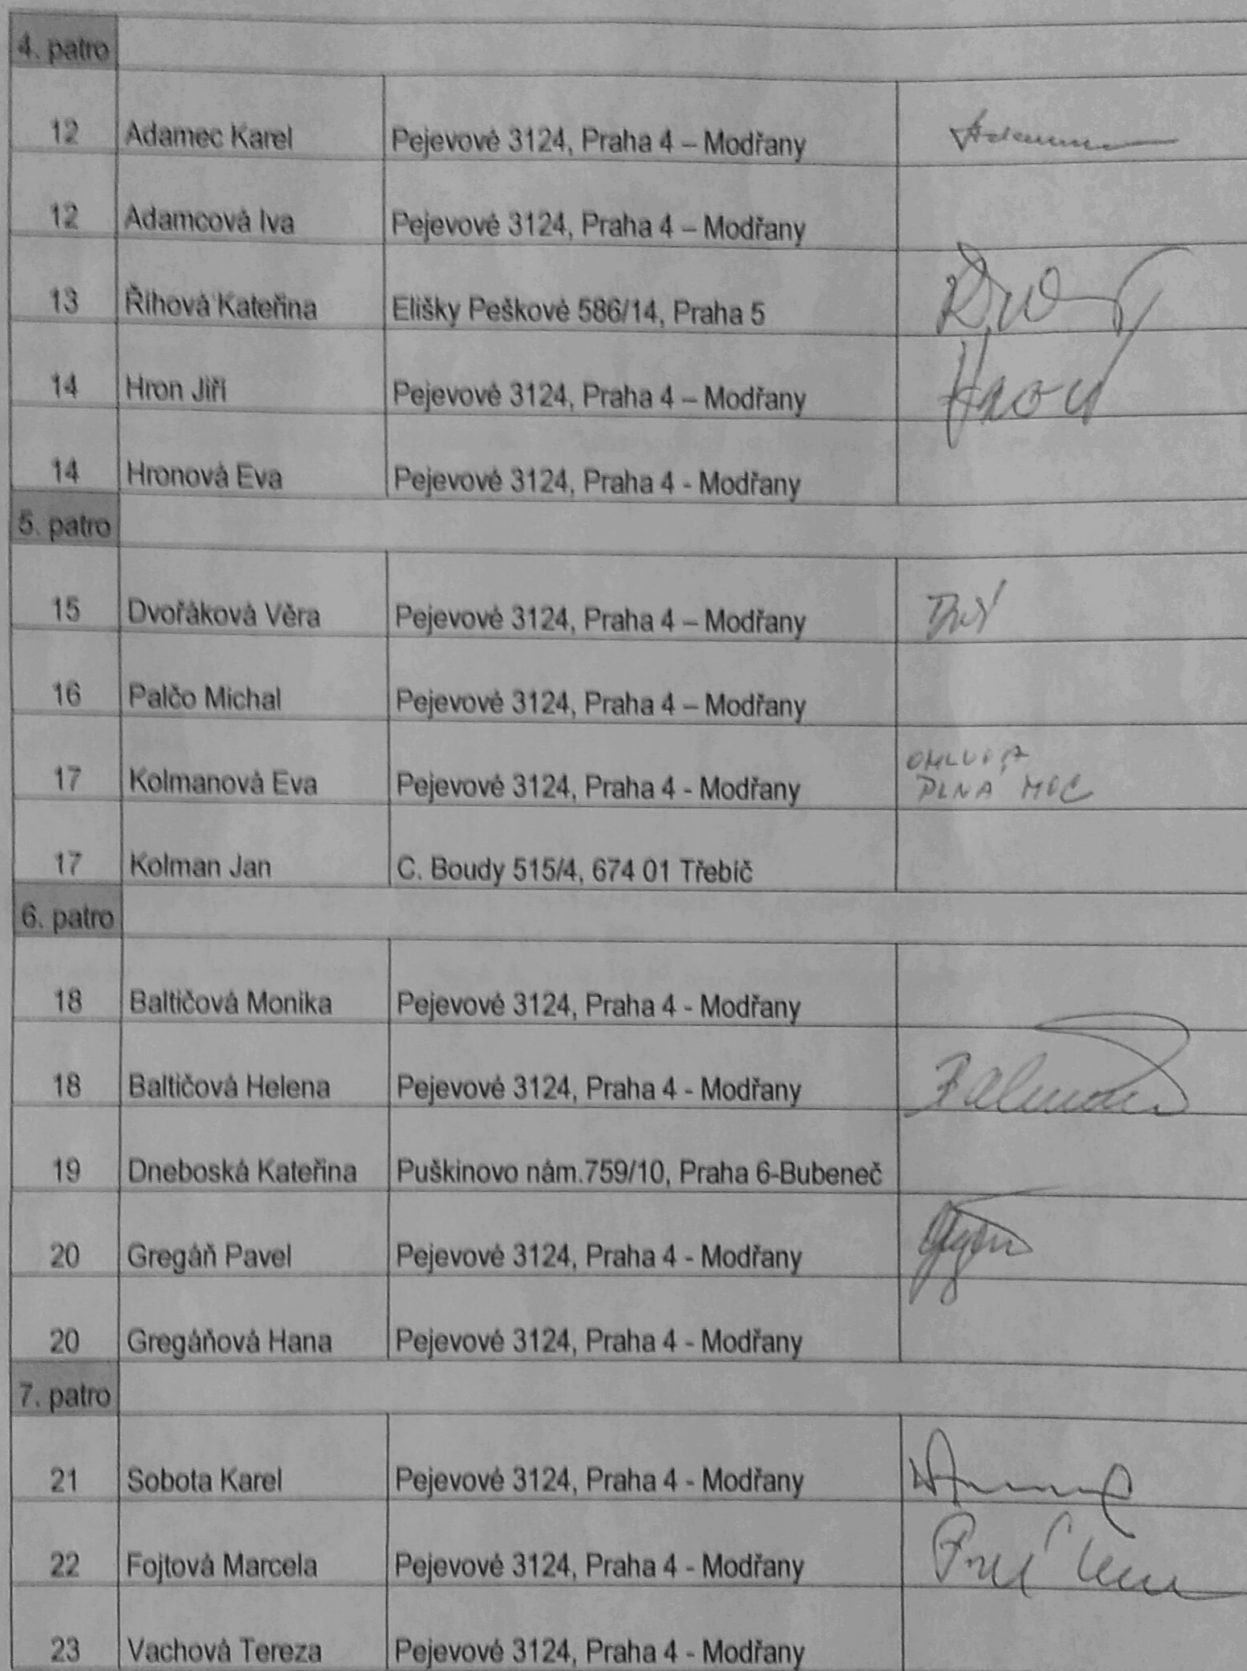 4. patro
12 Adamec Karel Pejevové 3124, Praha 4 – Modřany
12 Adamcová Iva Pejevové 3124, Praha 4 – Modřany
13 Říhová Kateřina Elišky Peškové 586/14, Praha 5
14 Hron Jiří Pejevové 3124, Praha 4 – Modřany Hron
14 Hronová Eva Pejevové 3124, Praha 4 - Modřany
5. patro
15 Dvořáková Věra Pejevové 3124, Praha 4 – Modřany
16 Palčo Michal Pejevové 3124, Praha 4 – Modřany
OMLUVA
17 Kolmanová Eva Pejevové 3124, Praha 4 - Modřany PLNÁ MOC
17 Kolman Jan C. Boudy 515/4, 674 01 Třebíč
6. patro
18 Baltičová Monika Pejevové 3124, Praha 4 - Modřany
18 Baltičová Helena Pejevové 3124, Praha 4 - Modřany
19 Dneboská Kateřina Puškinovo nám.759/10, Praha 6-Bubeneč
20 Gregáň Pavel Pejevové 3124, Praha 4 - Modřany
20 Gregáňová Hana Pejevové 3124, Praha 4 - Modřany
7. patro
21 Sobota Karel Pejevové 3124, Praha 4 - Modřany
22 Fojtová Marcela Pejevové 3124, Praha 4 - Modřany
23 Vachová Tereza Pejevové 3124, Praha 4 - Modřany